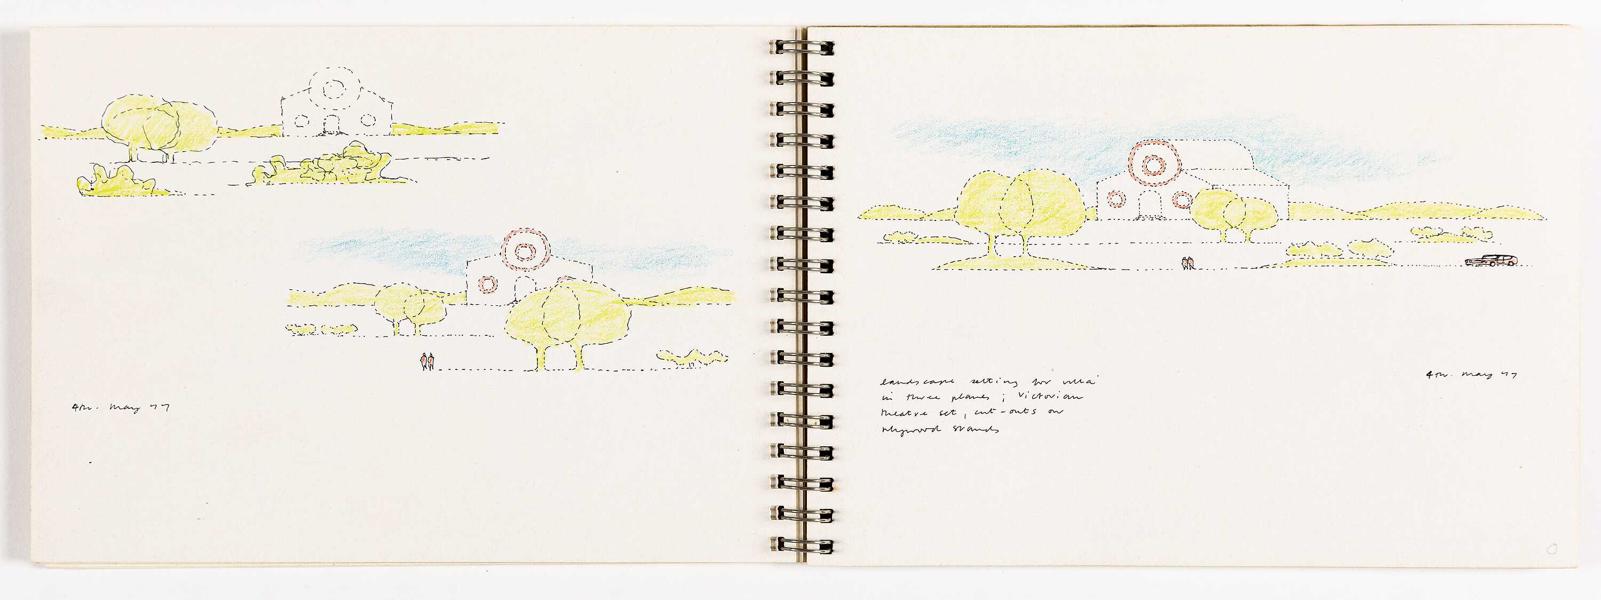 4th. May 77
landscape setting for 'villa'
in three planes ; Victorian
theatre set, cut-outs on
plywood stands
4th. May 77